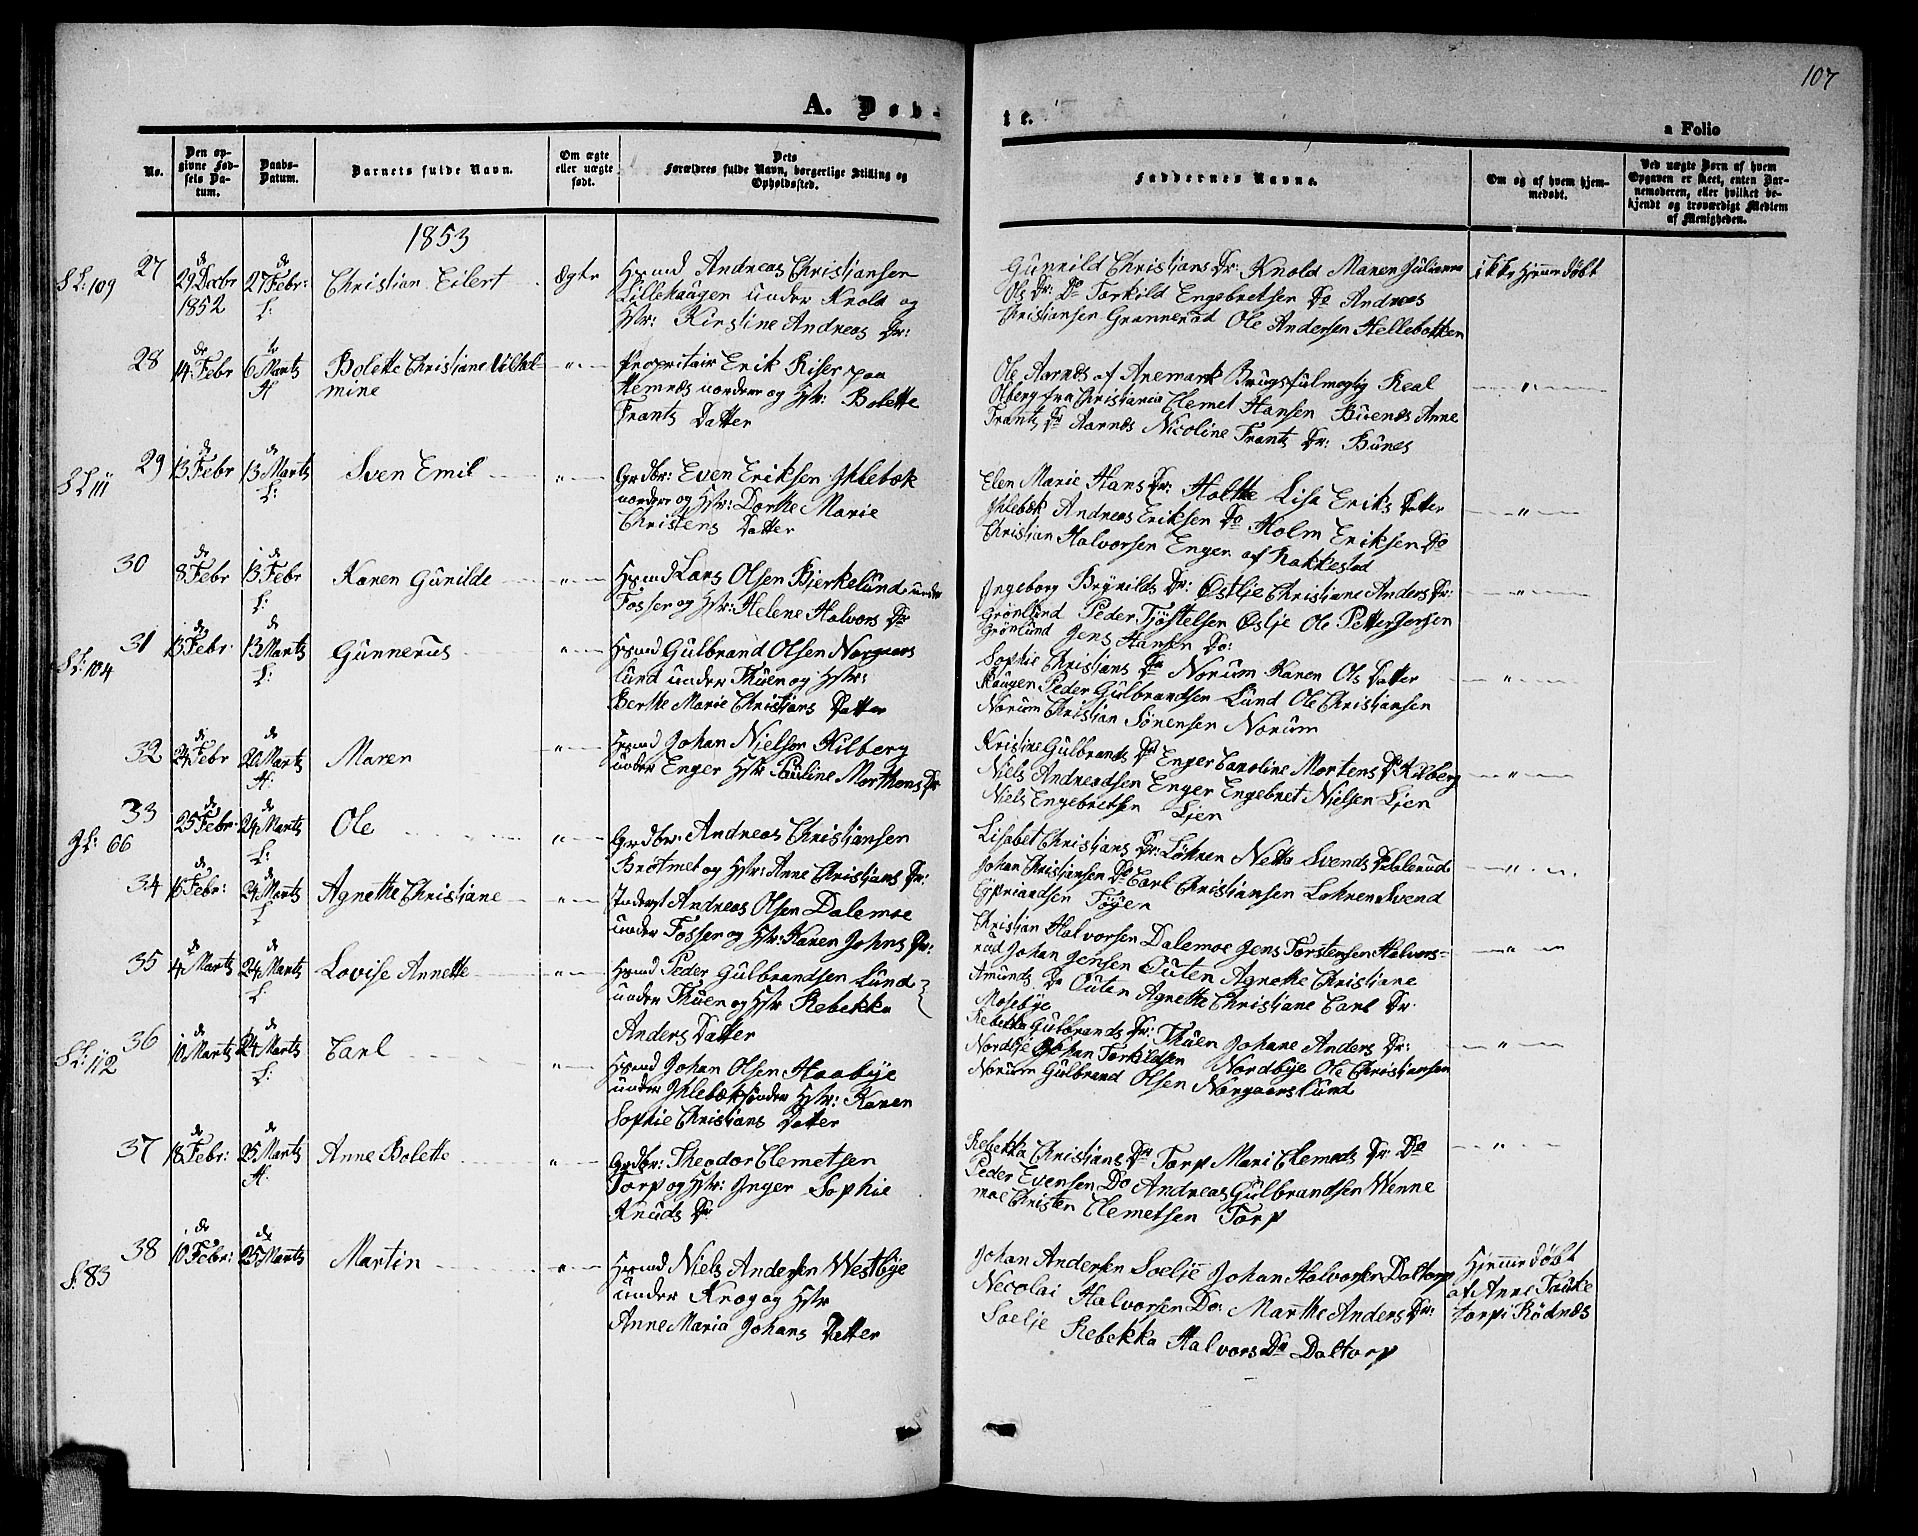 107
A. Døb-
te.
a Folio
No.
Den op-
givne Fød-
sels Da-
tum.
Daabs-
Datum.
Barnets fulde Navn.
Om ægte
eller uægte
født.
Dets
Forældres fulde Navn, borgerlige Stilling og
Opholdssted.
Faddernes Navne.
Om og af hvem hjem-
medøbt.
Ved uægte Børn af hvem
Opgaven er skeet, enten Bar-
nemoderen, eller hvilket be-
kjendt og troværdigt Medlem
af Menigheden.
1853
S L: 109
27
d
29 Decbr
1852
d
27 Febr:
L:
Christian Eilert
Ægte
Hsmd Andreas Christiansen
Lillehaugen under Krold og
Hstr: Kirstine Andreas Dr:
Gunnild Christians Dr: Knold Maren Juliana
Ols Dr: Do Torkild Engebretsen Do Andreas
Christiansen Grannerød Ole Andersen Hellebakken
ikke Hjemmedøbt
28
de
14 Febr
de
6 Marts
H
Bolette Christiane Vilhel-
mine
Propritair Erik Riser paa
Hemnæs nordere og Hstr: Bolette
Frants Datter
Ole Aarnæs af Aremark Brugsfulmægtig Real
Olberg fra Christiania Clemet Hansen Buenæs Anne
Frants Dr Aarnæs Nicoline Frants Dr: Bunes
S L 111
29
de
13 Febr
de
13 Marts
L:
Sven Emil
Grdbr: Even Eriksen Ihlebæk
nordere og Hstr: Dorthe Marie
Christens Datter
Elen Marie Hans Dr: Holtte Lisa Eriks Datter
Ihlebæk Andreas Eriksen Do Holm Eriksen Do
Christian Halvorsen Enger af Rakkestad
30
de
8 Febr
de
13 Febr
L:
Karen Gunilde
Hsmd Lars Olsen Bjerkelund under
Fosser og Hstr: Helene Halvors Dr
Ingeborg Brynilds Dr: Østlie Christiane Anders Dr:
Grønlund Peder Tjøstelsen Øslje Ole Petter Jensen
Grønlund Jens Hansen Do:
S L: 104
31
de
13 Febr
de
13 Marts
L:
Gunnerus
Hsmd Gulbrand Olsen Norgaars
lund under Thuen og Hstr:
Berthe Marie Christians Datter
Sophie Christians Dr Norum Karen Ols Datter
Haugen Peder Gulbrandsen Lund Ole Christiansen
Norum Christian Sørensen Norum
32
de
24 Febr
de
20 Marts
H.
Maren
Hsmd Johan Nielsen Kilberg
under Enger Hstr Pauline Morthens Dr
Kristine Gulbrands Dr Enger Caroline Mortens Dr Kilberg
Niels Andreasen Enger Engebret Nielsen Lien
Niels Engebretsen Lien
L: 66
33
de
25 Febr
de
24 Marts
L:
Ole
Grdbr: Andreas Christiansen
Bråtmet og Hstr: Anne Christians Dr:
Lisabet Christians Dr: Løhren Netta Svends
Johan Christiansen Do Carl Christiansen Lohren Svend
Cypriandsen Toger
34
de
16 Febr:
de
24 Marts
L
Agnette Christiane
Inderst Andreas Olsen Dalemoe
under Fosser og Hstr: Karen Johns Dr:
Christian Halvorsen Dalemoe Jens Torstensen Halvors-
rud Johan Jensen Outen Agnethe Christiane
Amunds Dr Outen Agnethe Christiane Carl Dr:
Mosebye
35
de
4 Marts
de
24 Marts
L:
Lovise Annette
Hsmd Peder Gulbrandsen Lund
under Thuen og Hstr Rebekka
Anders Datter
Rebekka Gulbrands Dr: Thuen Johane Anders Dr:
Nordbye Johan Torkildsen Nordbye Ole Christiansen
Norum Gulbrand Olsen Norgaarslund
S L: 112
36
de
10 Marts
de
24 Marts
L:
Carl
Hsmd Johan Olsen Haabye
under Ihlebæk Søndre Hstr: Karen
Sophie Christians Datter
37
de
18 Febr:
de
25 Marts
H.
Anne Bolette
Grdbr: Theodor Clemetsen
Torp og Hstr: Inger Sophie
Knuds Dr
Rebekka Christians Dr Torp Mari Clemeds Dr Do
Peder Evensen Do Andreas Gulbrandsen Wenne
moe Christen Clemetsen Torp
S. 83
38
de
10 Febr:
de
25 Marts
Martin
Hsmd Niels Andersen Westbye
under Krog og Hstr
Anne Maria Johans Datter
Johan Andersen Soelje Johan Halvorsen Daltorp
Necolai Halvorsen Do: Marthe Anders Dr:
Soelje Rebekka Halvors Dr Daltorp
Hjemmedøbt
af Anne Tanke
torp i Rødnæs